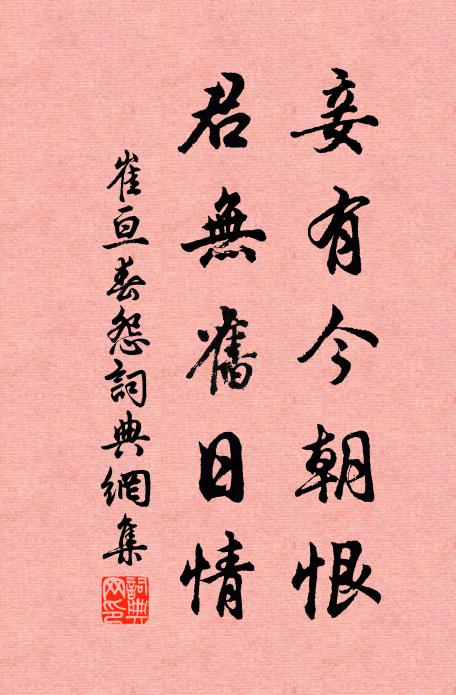 妾有今朝恨
君無舊日情
崔亘春怨詞典網集
詞典網印